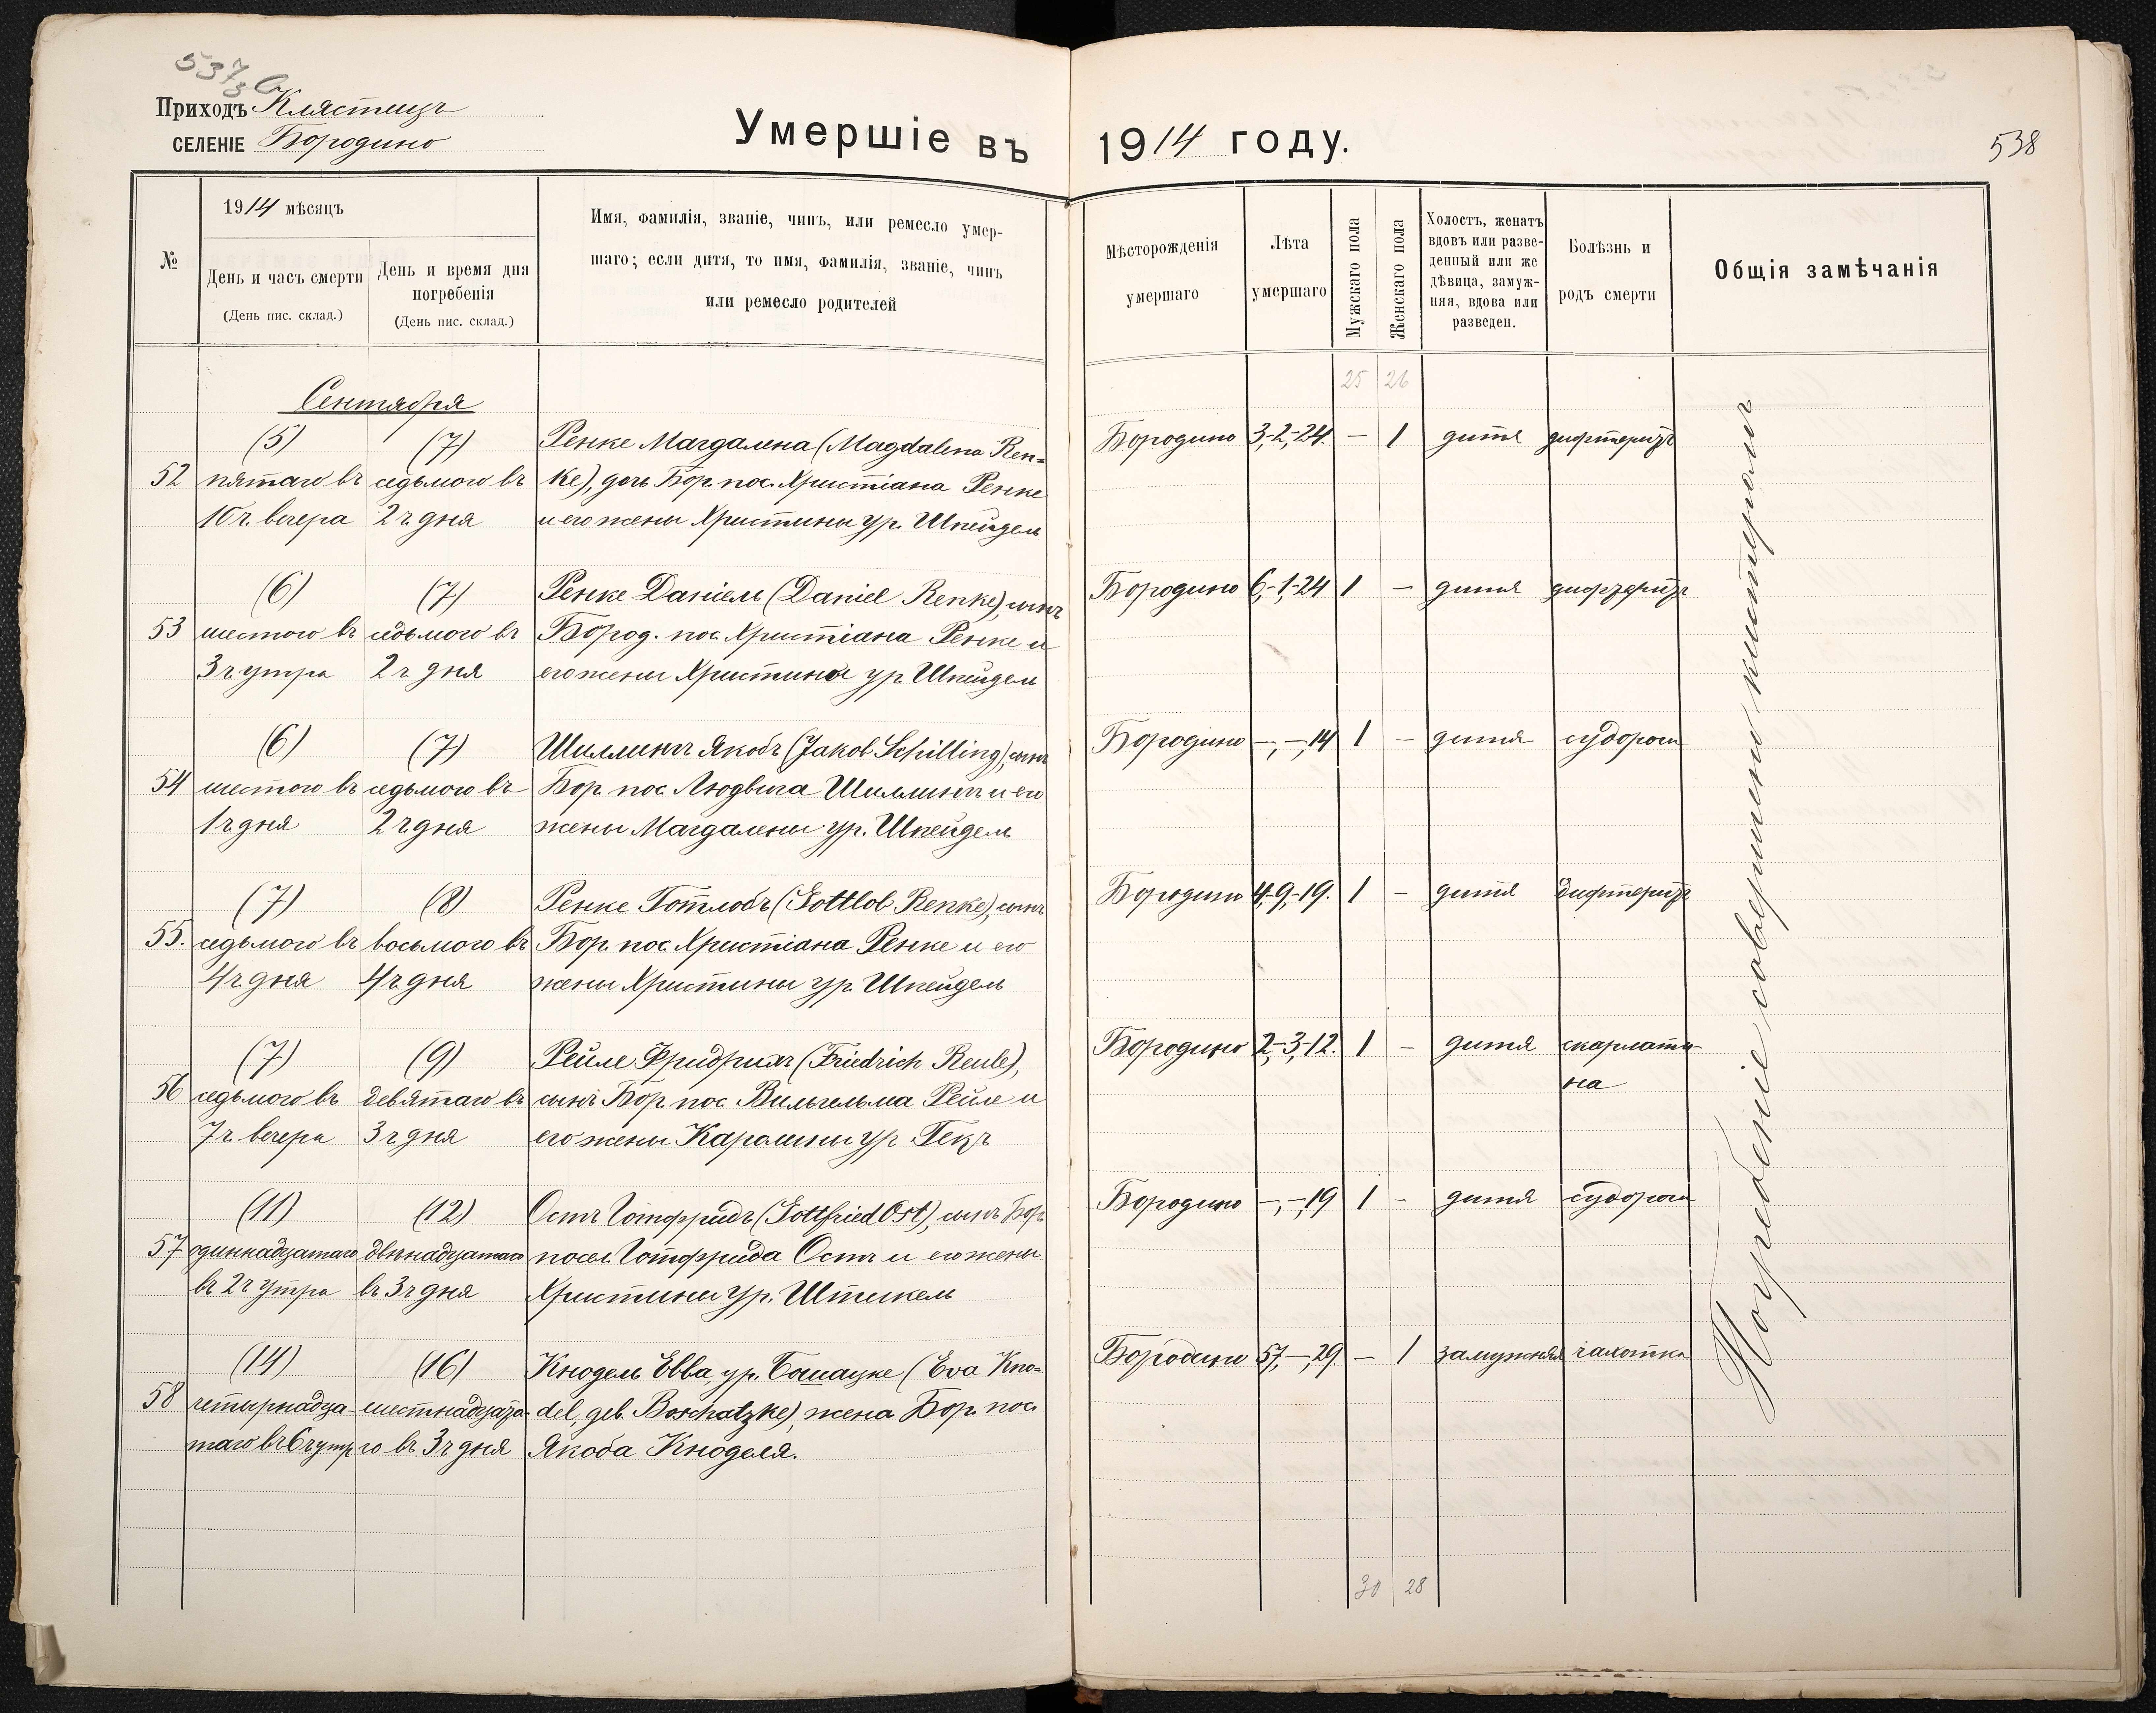 537
3
Приходъ Клястицъ
СЕЛЕНІЕ Бородино
Умершіе въ 1914 году.
538
№
1914 мѣсяцъ
День и часъ смерти
(День пис. склад.)
День и время дня
погребенія
(День пис. склад.)
Имя, фамилія, званіе, чинъ, или ремесло умер-
шаго; если дитя, то имя, фамилія, званіе, чинъ
или ремесло родителей
Мѣсторожденія
умершаго
Лѣта
умершаго
Мужскаго пола
Женскаго пола
Холостъ, женатъ
вдовъ или разве-
денный или же
дѣвица, замуж-
няя, вдова или
разведен.
Болѣзнь и
родъ смерти
Общія замѣчанія
25 26
Сентября
(5) (7) Ренке Магдалена (Magdalena Ren= Бородино 3,-2,-24. — 1 дитя дифтеритъ
52 пятаго въ седьмого въ ke), дочь Бор. пос. Христіана Ренке
10 ч. вечера 2 ч. дня и его жены Христины ур. Шпейдель
(6) (7) Ренке Даніель (Daniel Renke), сынъ Бородино 6,-1,-24 1 — дитя дифтеритъ
53 шестого въ седьмого въ Бород. пос. Христіана Ренке и
3 ч утра 2 ч дня его жены Христины ур. Шпейдель
(6) (7) Шиллингъ Якобъ (Jakob Schilling), сынъ Бородино —,—,14 1 — дитя судороги
54 шестого въ седьмого въ Бор. пос. Людвига Шиллингъ и его
1 ч. дня 2 ч дня жены Магдалены ур. Шпейдель
(7) (8) Ренке Готлобъ (Gottlob Renke), сынъ Бородино 4,-9,-19. 1 — дитя дифтеритъ
55. седьмого въ восьмого въ Бор. пос. Христіана Ренке и его
4 ч дня 4 ч. дня жены Христины ур. Шпейдель
(7) (9) Рейле Фридрихъ (Friedrich Reule), Бородино 2,-3,-12. 1 — дитя скарлати-
на
56 седьмого въ девятаго въ сынъ Бор. пос. Вильгельма Рейле и
7 ч. вечера 3 ч дня его жены Каролины ур.
(11) (12) Остъ Готфридъ (Gottfried Ost), сынъ Бор. Бородино —,—,19 1 — дитя судороги
57 одиннадцатаго двѣнадцатаго посел. Готфрида Остъ и его жены
въ 2 ч утра въ 3 ч дня Христины ур. Штикель
(14) (16) Кнодель Евва, ур. Бошацке (Eva Kno= Бородино 57,—,29 — 1 замужняя чахотка
58 четырнадца- шестнадцата- del, geb. Boschatzke), жена Бор. пос.
таго въ 6 ч утр го въ 3 ч дня Якоба Кноделя.
Погребеніе совершено кистеромъ
30 28